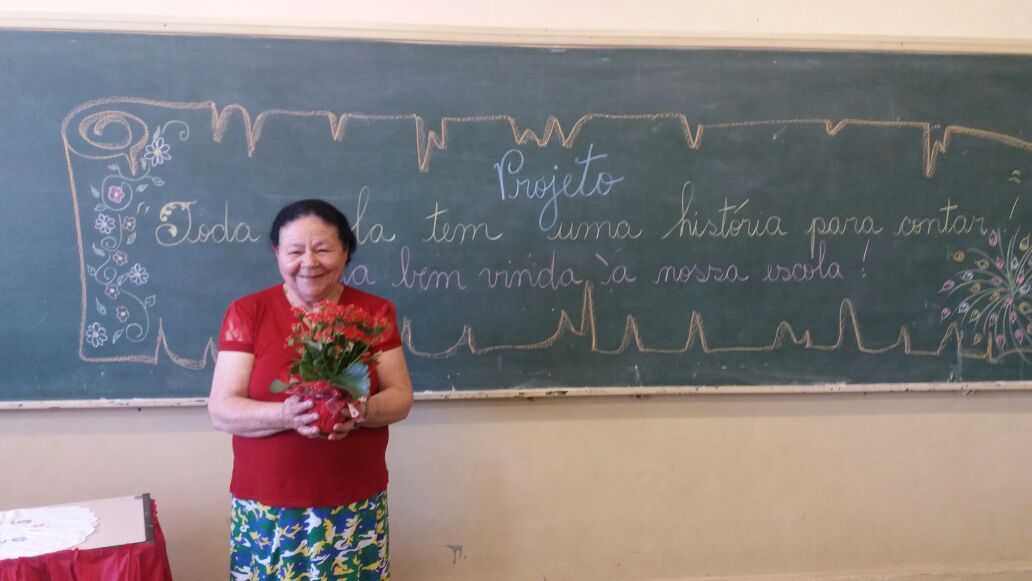 Projeto
"Toda la tem uma história para contar!"
a bem vinda à nossa escola!